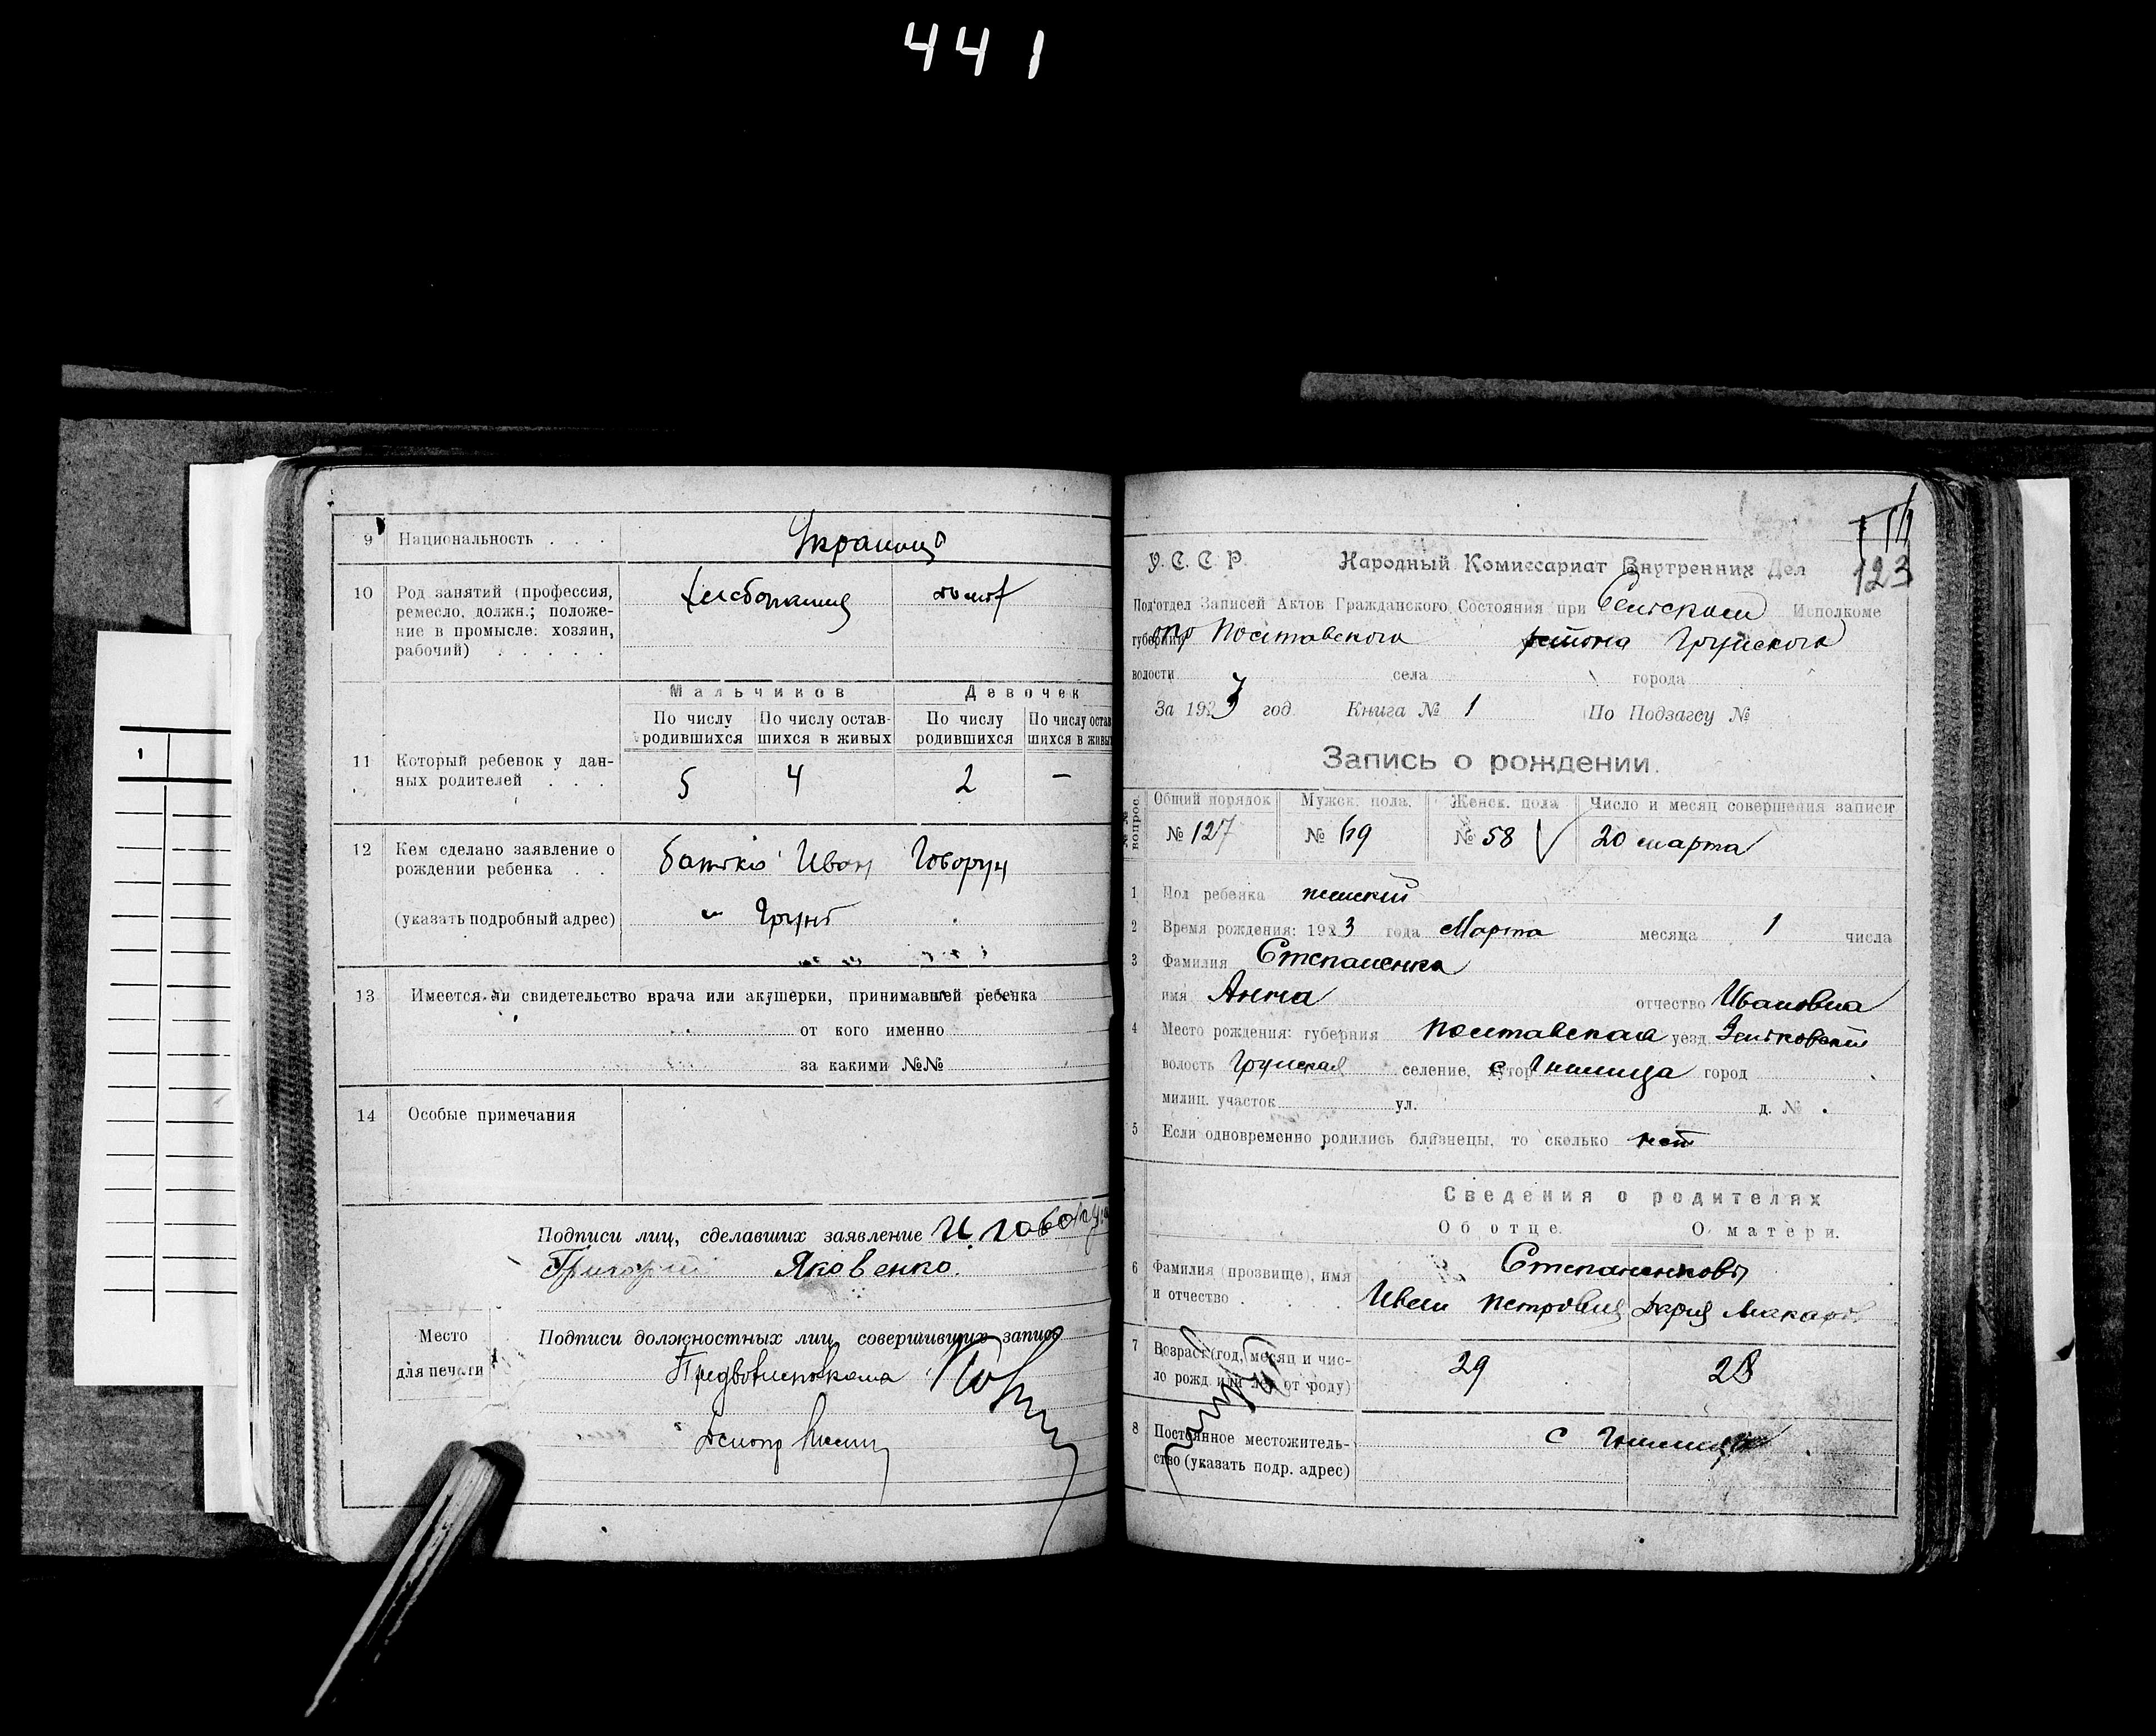 441
9 Национальность . . . Украинці
10 Род занятий (профессия, ремесло, должн.; положение в промысле: хозяин, рабочий) . . . . .
Мальчиков Девочек
По числу родившихся По числу оставшихся в живых По числу родившихся По числу остав шихся в живы
11 Который ребенок у данных родителей . . . 5 4 2 —
12 Кем сделано заявление о рождении ребенка . . батько Иван Говорун
(указать подробный адрес) Грунь
13 Имеется ли свидетельство врача или акушерки, принимавшей ребенка
от кого именно
за какими №№
14 Особые примечания
Подписи лиц, сделавших заявление И Говорун
Григорий Яковенко.
Место для печати
Подписи должностных лиц, совершивших запись
123
У. С. С. Р. Народный Комиссариат Внутренних Дел
Под'отдел Записей Актов Гражданского Состояния при Сельском Исполкоме
губернии Полтавского района Грунского
волости села города
За 1923 год. Книга № 1 По Подзагсу №
Запись о рождении.
№№ вопрос. Общий порядок Мужск. пола. Женск. пола Число и месяц совершения записи
№ 127 № 69 № 58 20 марта
1 Пол ребенка женский
2 Время рождения: 1923 года Марта месяца 1 числа
3 Фамилия Степаненко
имя Анна отчество Ивановна
4 Место рождения: губерния Полтавская уезд Зеньковский
волость Грунская селение, хутор с город
милиц. участок ул. д. № .
5 Если одновременно родились близнецы, то сколько нет
Сведения о родителях
Об отце. О матери.
6 Фамилия (прозвище), имя и отчество . . . Степаненковы
Иван Петрович Дария Макаров.
7 Возраст (год, месяц и число рожд. или лет от роду) 29 28
8 Постоянное местожительство (указать подр. адрес) с